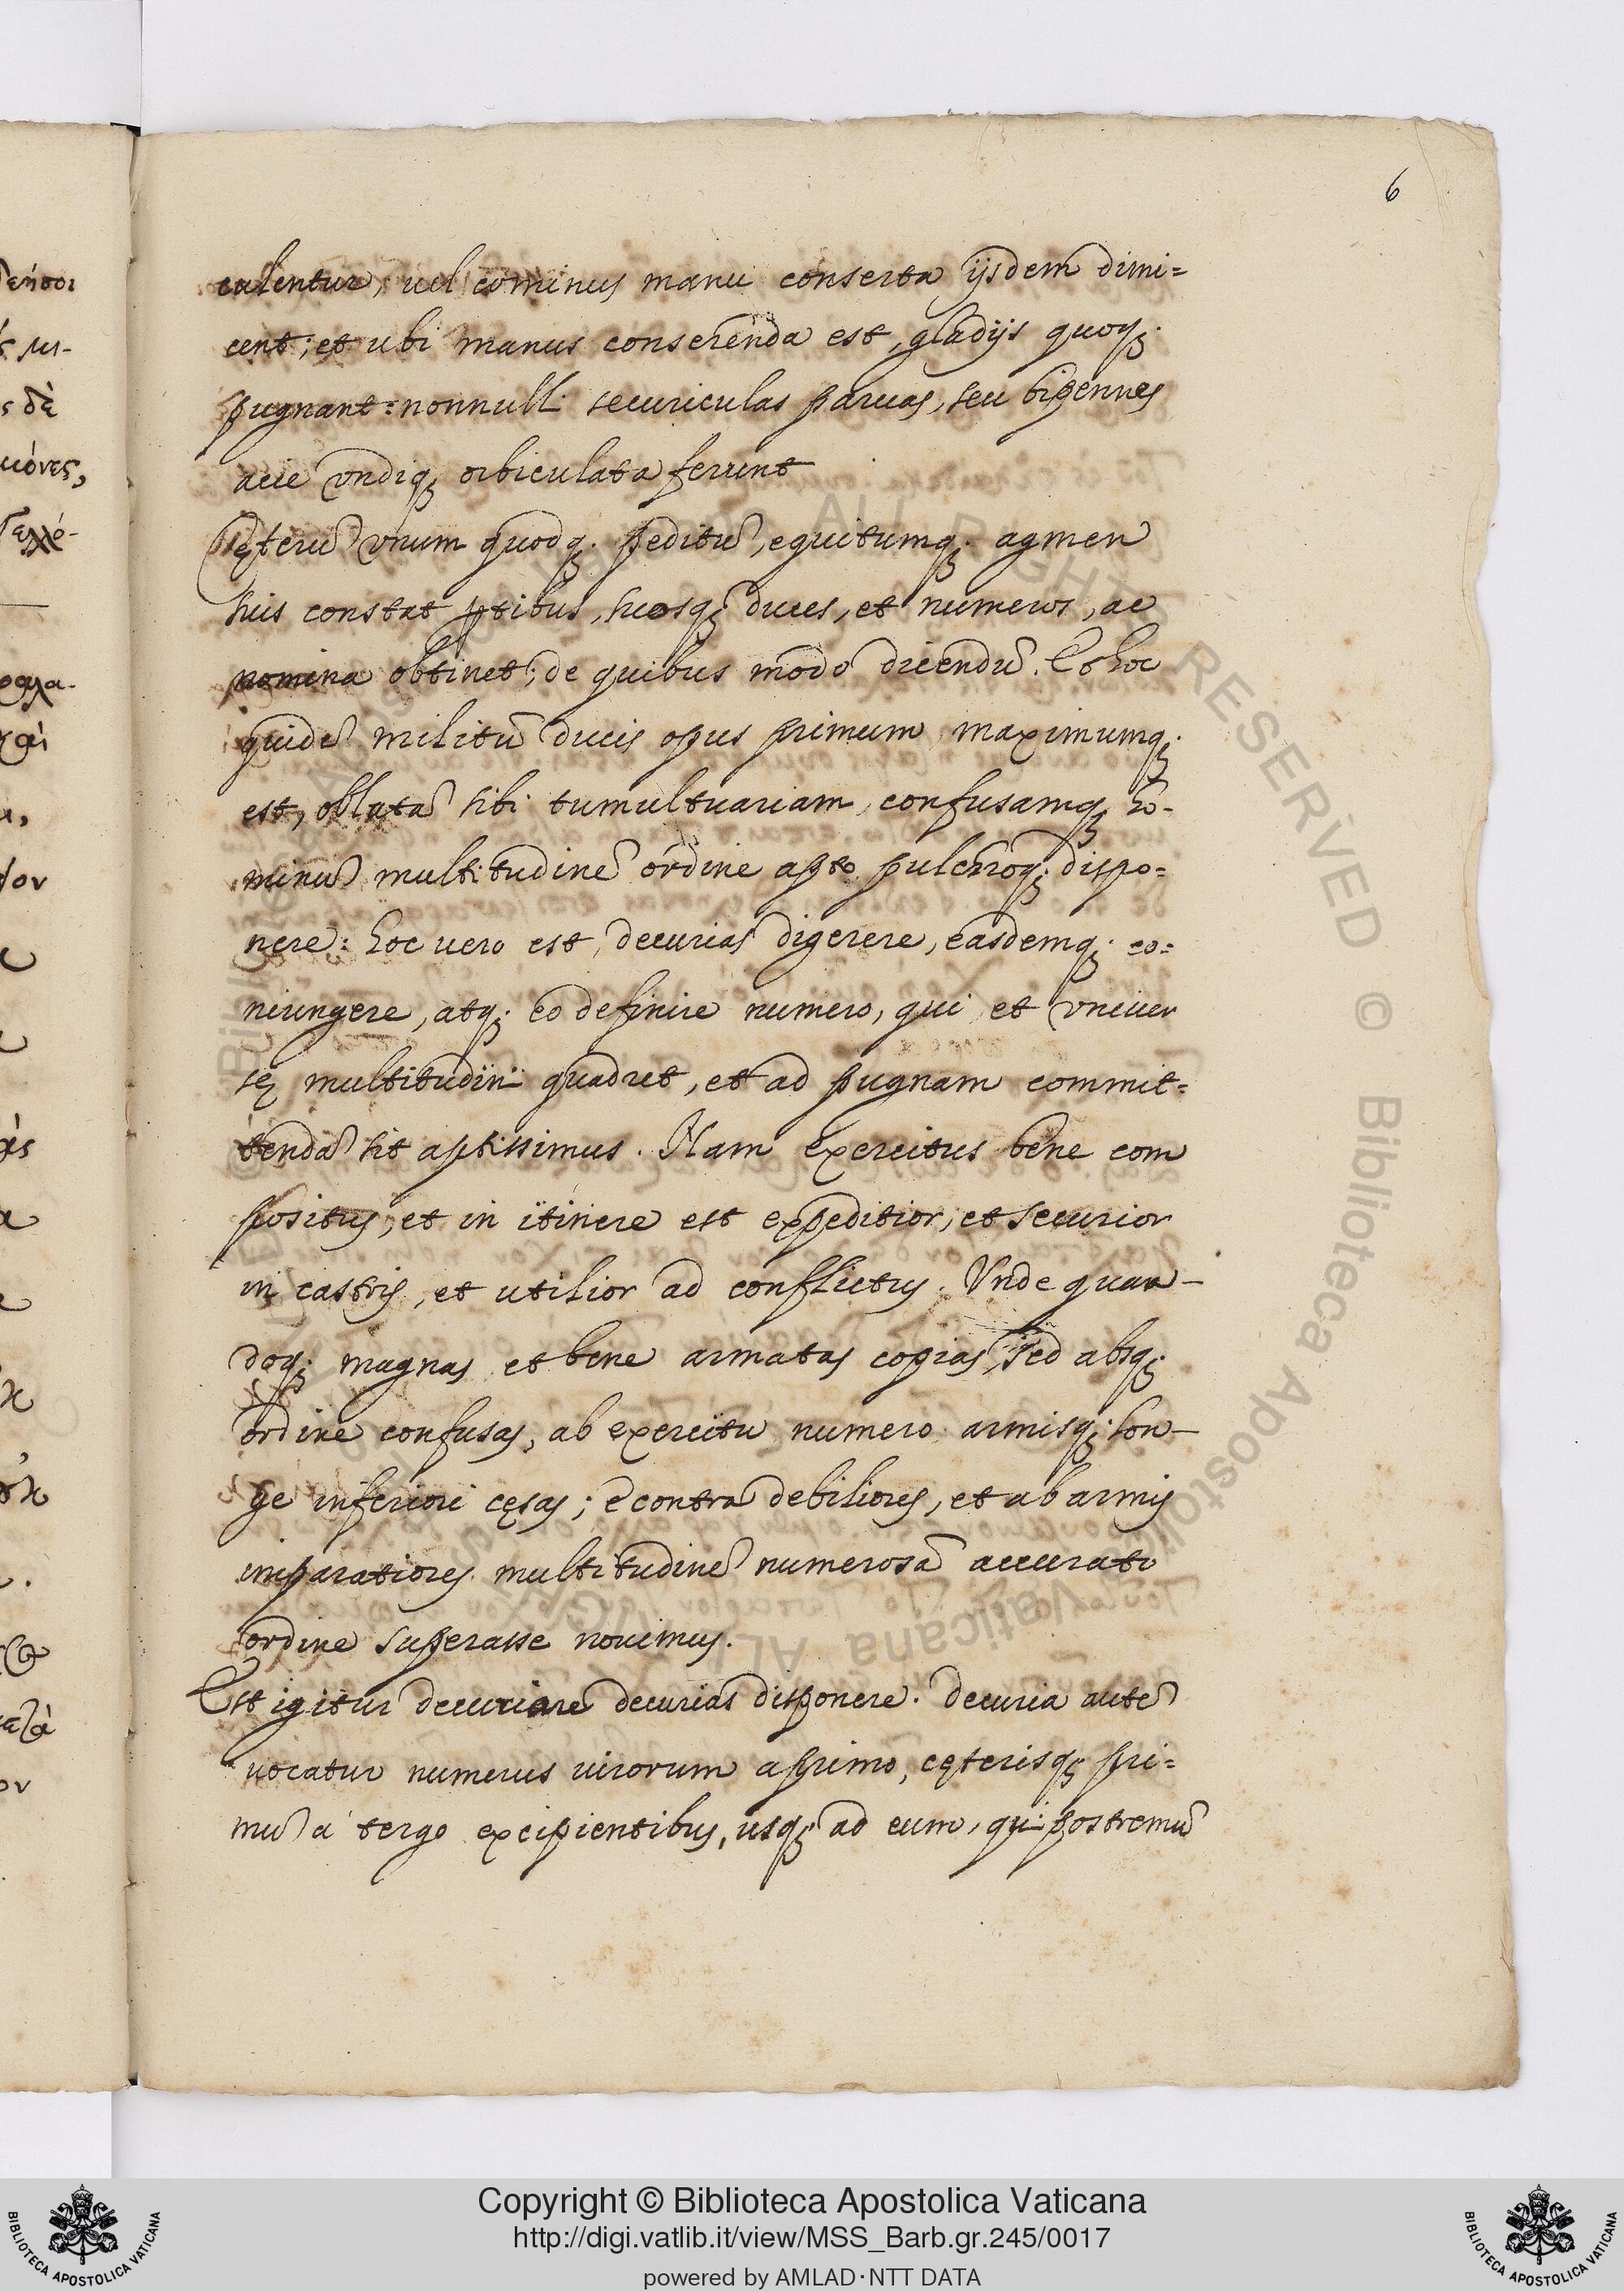 6
culentur, uel cominus manu conserta ijsdem dimi=
cent; et ubi manus conserenda est, gladijs quoq;
pugnant: nonnulli securiculas paruas, seu bipennes
acie vndiq; orbiculata ferunt
Cęterũ vnum quodq; peditũ, equitumq; agmen
suis constat ꝑtibus, suosq; duces, et numeros, ac
nomina obtinet; de quibus modo dicendũ. Et hoc
quidẽ militũ ducis opus primum maximumq;
est, oblatã sibi tumultuariam, confusamq; ho-
minũ multitudinẽ ordine apto pulchroq; dispo=
nere: hoc uero est, decurias digerere, easdemq; co=
niungere, atq; eo definire numero, qui et vniuer
sę multitudini quadret, et ad pugnam commit=
tendã sit aptissimus. Nam exercitus bene com
positus, et in itinere est expeditior, et securior
in castris, et utilior ad conflictus. Vnde quan-
doq; magnas et bene armatas copias, sed absq;
ordine confusas, ab exercitu numero armisq; lon-
ge inferiori cęsas; e contra debiliores, et ab armis
imparatiores multitudinẽ numerosã accurato
ordine superasse nouimus.
Est igitur decuriare decurias disponere. decuria autẽ
uocatur numerus uirorum a primo, cęterisq; pri=
mũ a tergo excipientibus, usq; ad eum, qui postremũ
Copyright © Biblioteca Apostolica Vaticana
http://digi.vatlib.it/view/MSS_Barb.gr.245/0017
powered by AMLAD·NTT DATA
BIBLIOTECA APOSTOLICA VATICANA
BIBLIOTECA APOSTOLICA VATICANA